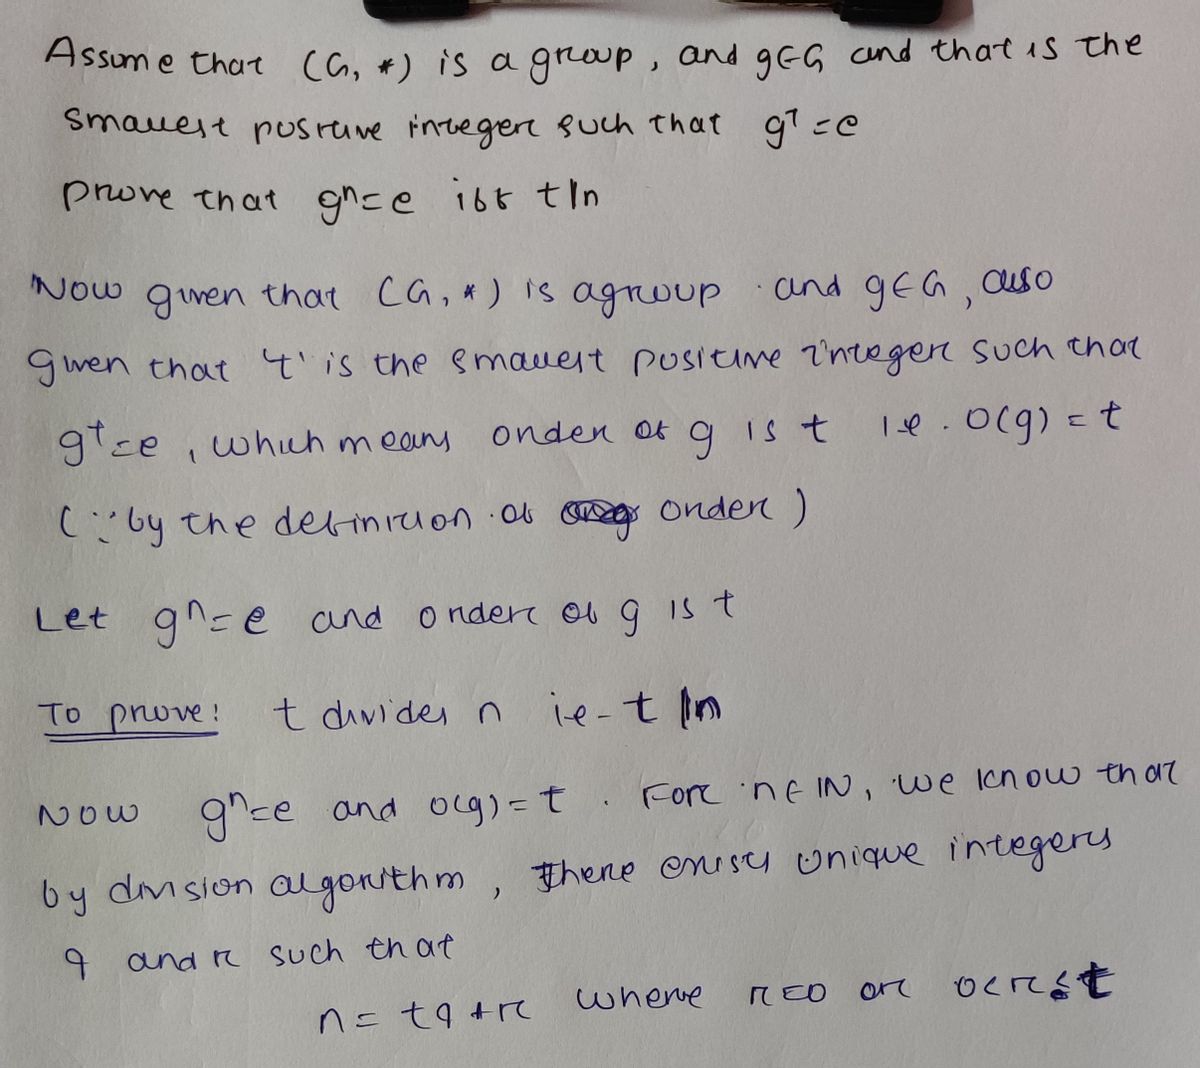 Assume that (G, *) is a group, and g∈G and that is the
smallest positive integer such that g^t = e
prove that g^n = e iff t|n
Now given that (G, *) is a group and g∈G, also
given that 't' is the smallest positive integer such that
g^t = e, which means order of g is t i.e. O(g) = t
(∵ by the definition of order)
Let g^n = e and order of g is t
To prove: t divides n i.e - t|n
NOW g^n = e and o(g) = t. For n∈IN, we know that
by division algorithm, there exists unique integers
q and r such that
n = tq + r where r = 0 or 0<r<t